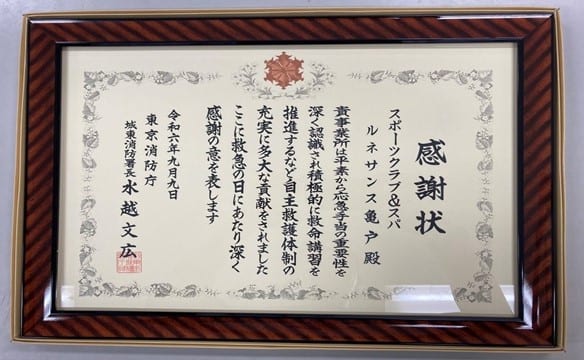 感謝状
スポーツクラブ&スパ
ルネサンス亀戸殿
貴事業所は平素から応急手当の重要性を
深く認識され積極的に救命講習を
推進するなど自主救護体制の
充実に多大な貢献をされました
ここに救急の日にあたり深く
感謝の意を表します
令和六年九月九日
東京消防庁
城東消防署長 水越文広